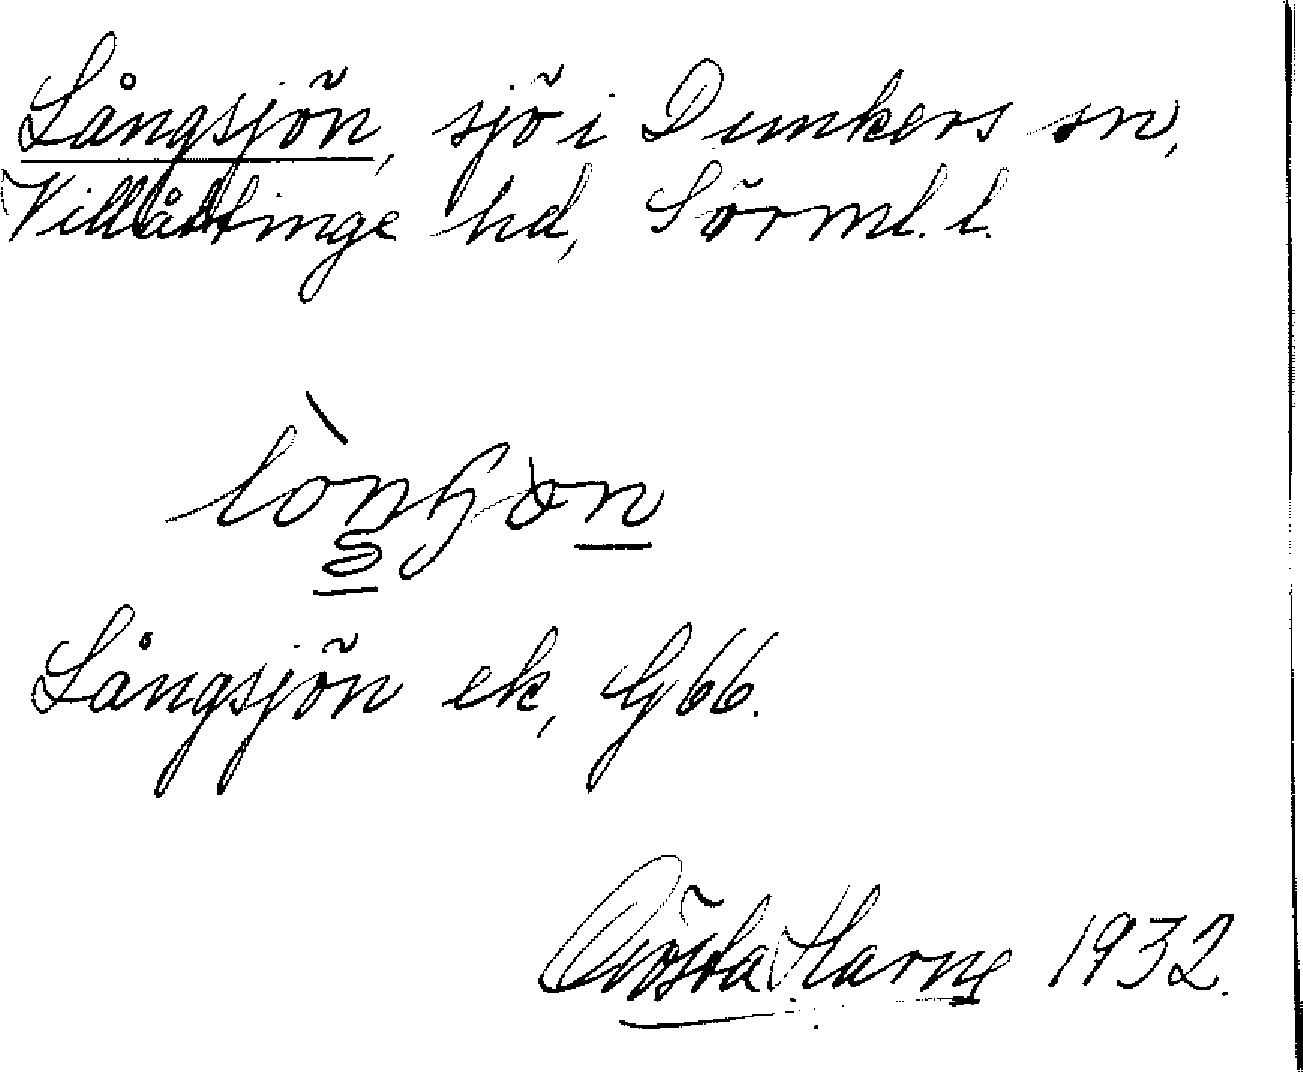 Långsjön, sjö i Dunkers sn,
Villåttinge hd, Sörml. l.
Långsjön ek, G66.
Gösta Harne 1932.